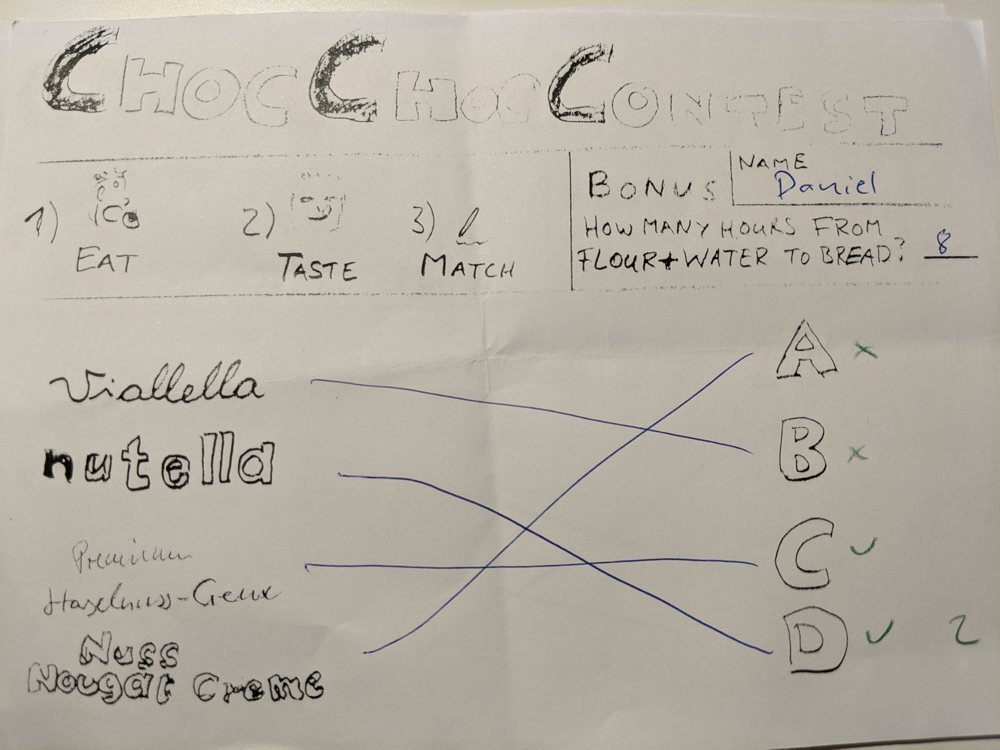 CHOC CHOC CONTEST
1) EAT
2) TASTE
3) MATCH
BONUS
NAME
Daniel
HOW MANY HOURS FROM
FLOUR+WATER TO BREAD? 8
Viallella
A x
nutella
B x
Premium
Haselnuss-Creme
C ✓
Nuss
Nougat Creme
D ✓ 2